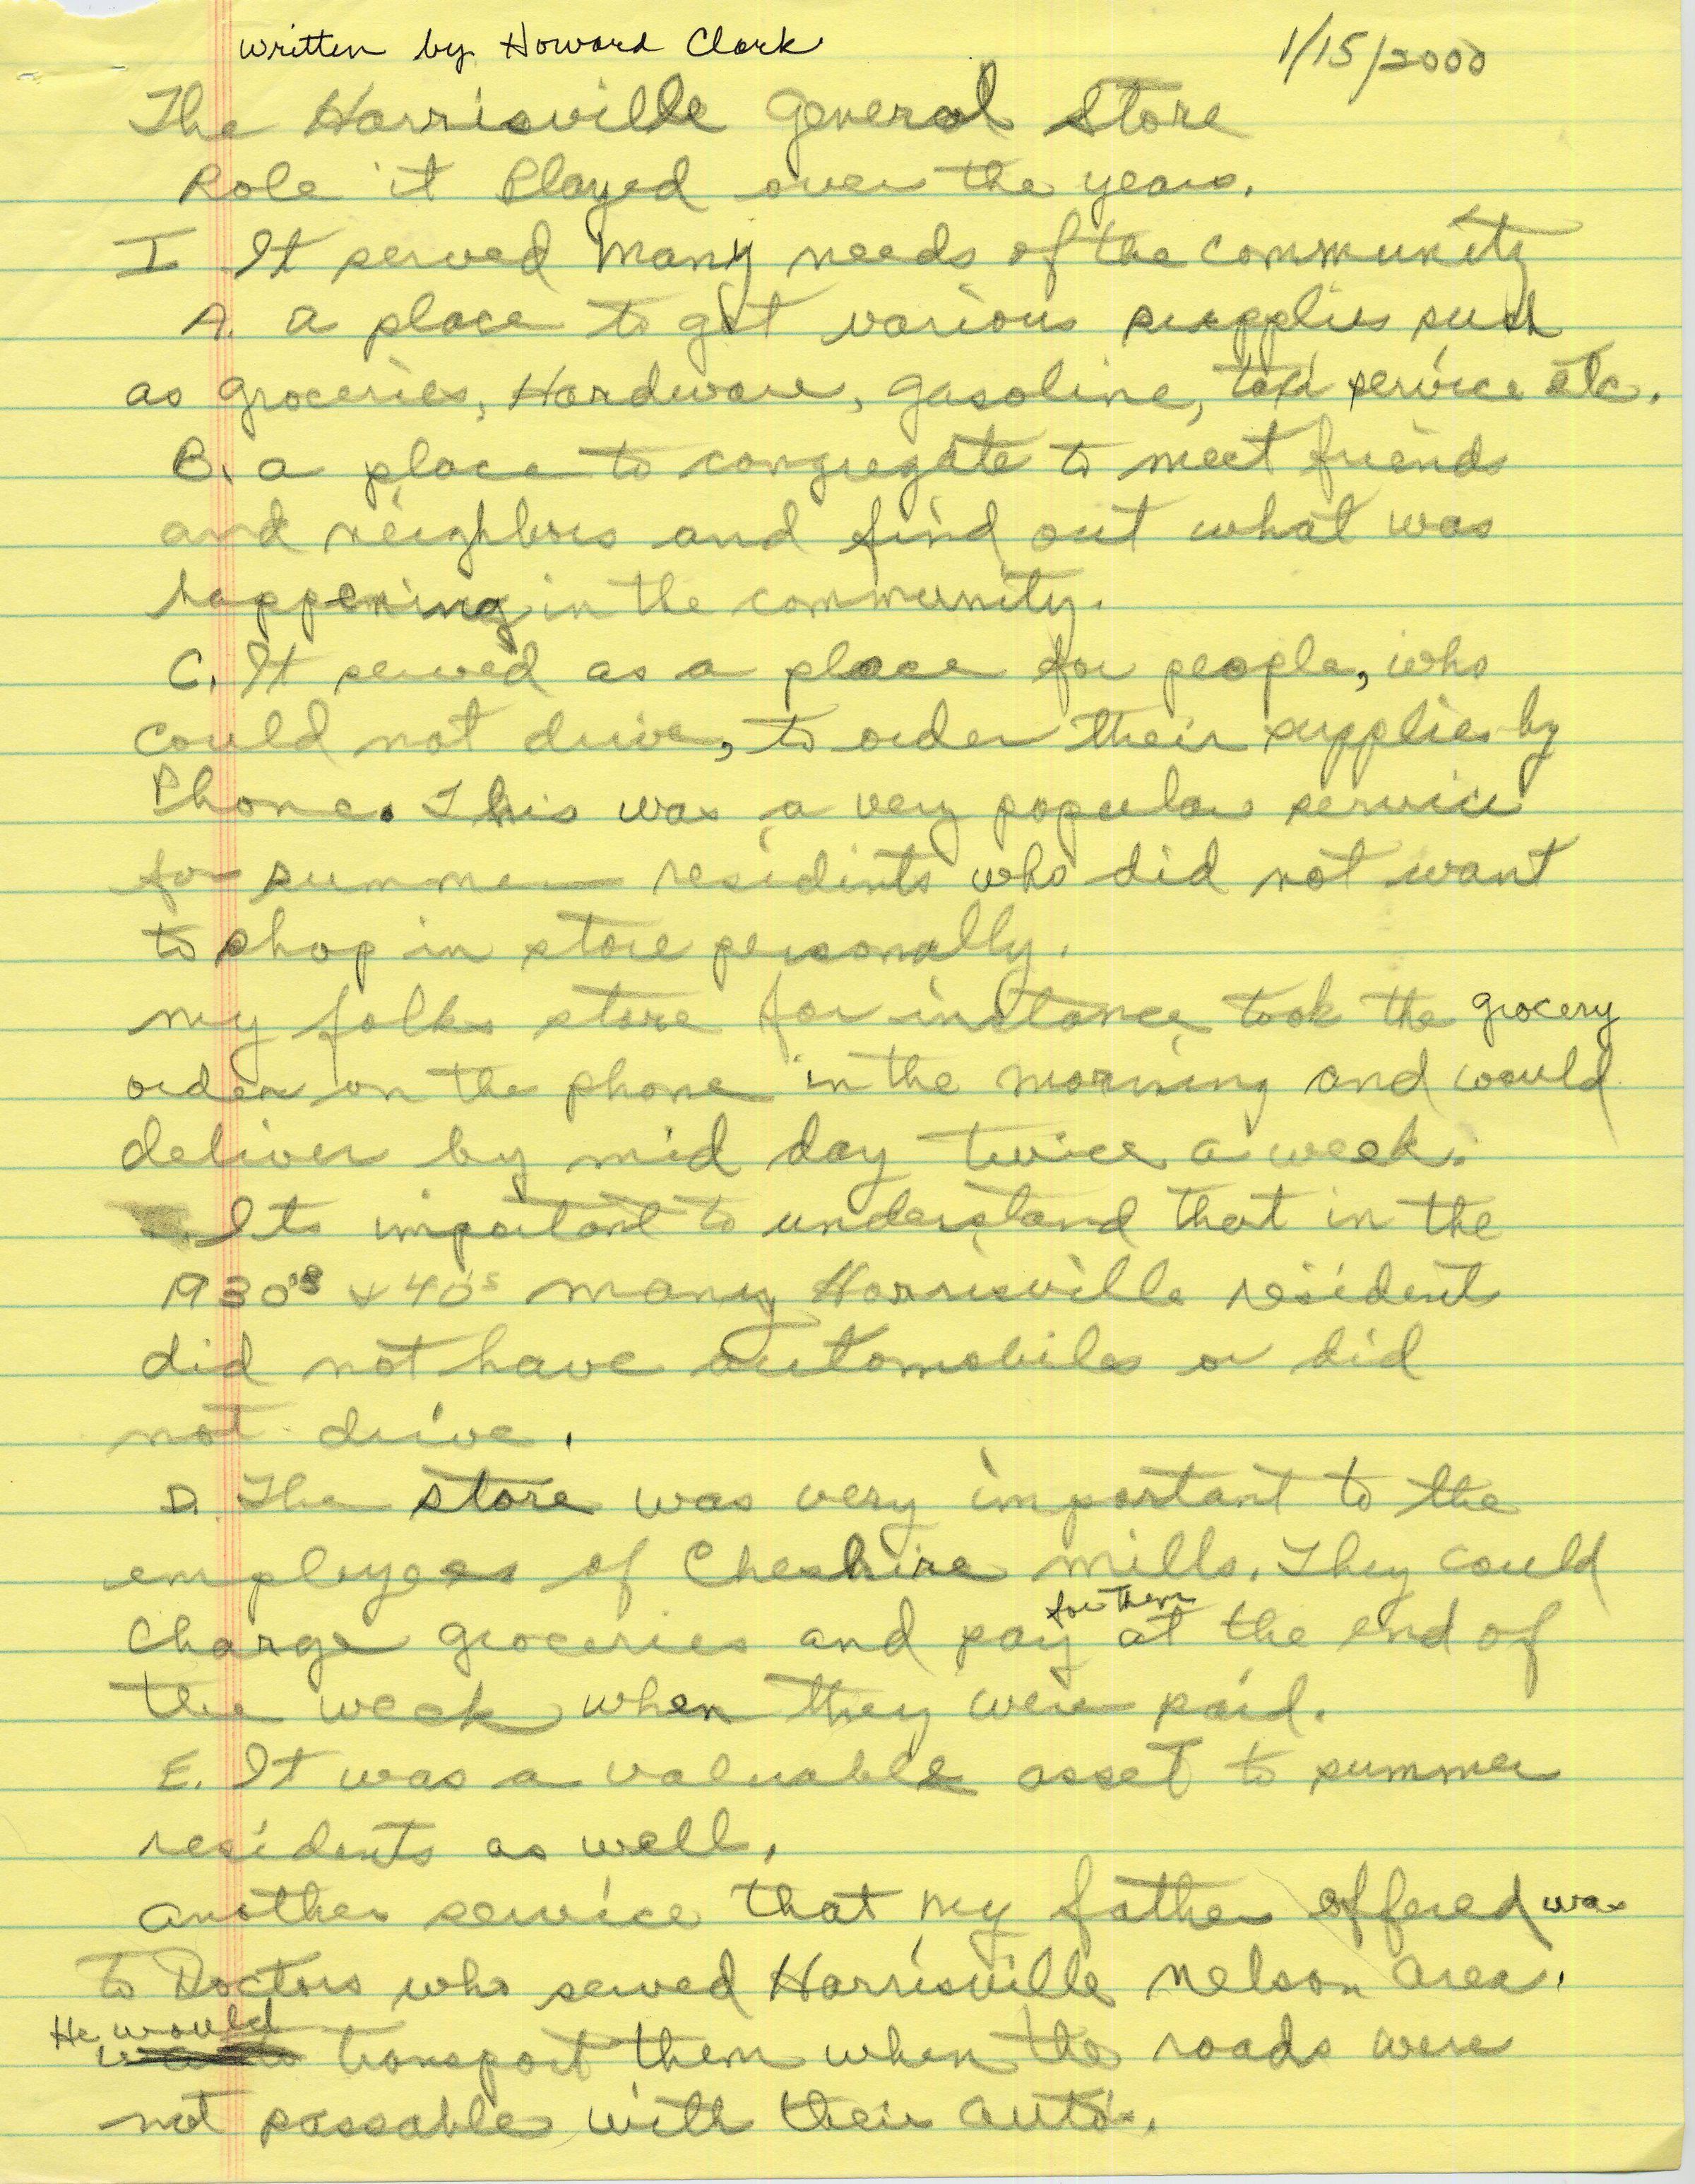 written by Howard Clark 1/15/2000
The Harrisville General Store
Role it Played over the years.
I It served many needs of the community
A. a place to get various supplies such
as groceries, Hardware, gasoline, taxi service etc.
B. a place to congregate to meet friends
and neighbors and find out what was
happening in the community.
C. It served as a place for people, who
could not drive, to order their supplies by
Phone. This was a very popular service
for summer residents who did not want
to shop in store personally.
my folks store for instance took the grocery
order on the phone in the morning and would
deliver by mid day twice a week.
Its important to understand that in the
1930's & 40's many Harrisville resident
did not have automobiles or did
not drive.
D. The store was very important to the
employees of Cheshire mills. They could
for them
Charge groceries and pay at the end of
the week when they were paid.
E. It was a valuable asset to summer
residents as well.
another service that my father offered was
to Doctors who served Harrisville Nelson area.
He would
transport them when the roads were
not passable with their auto.